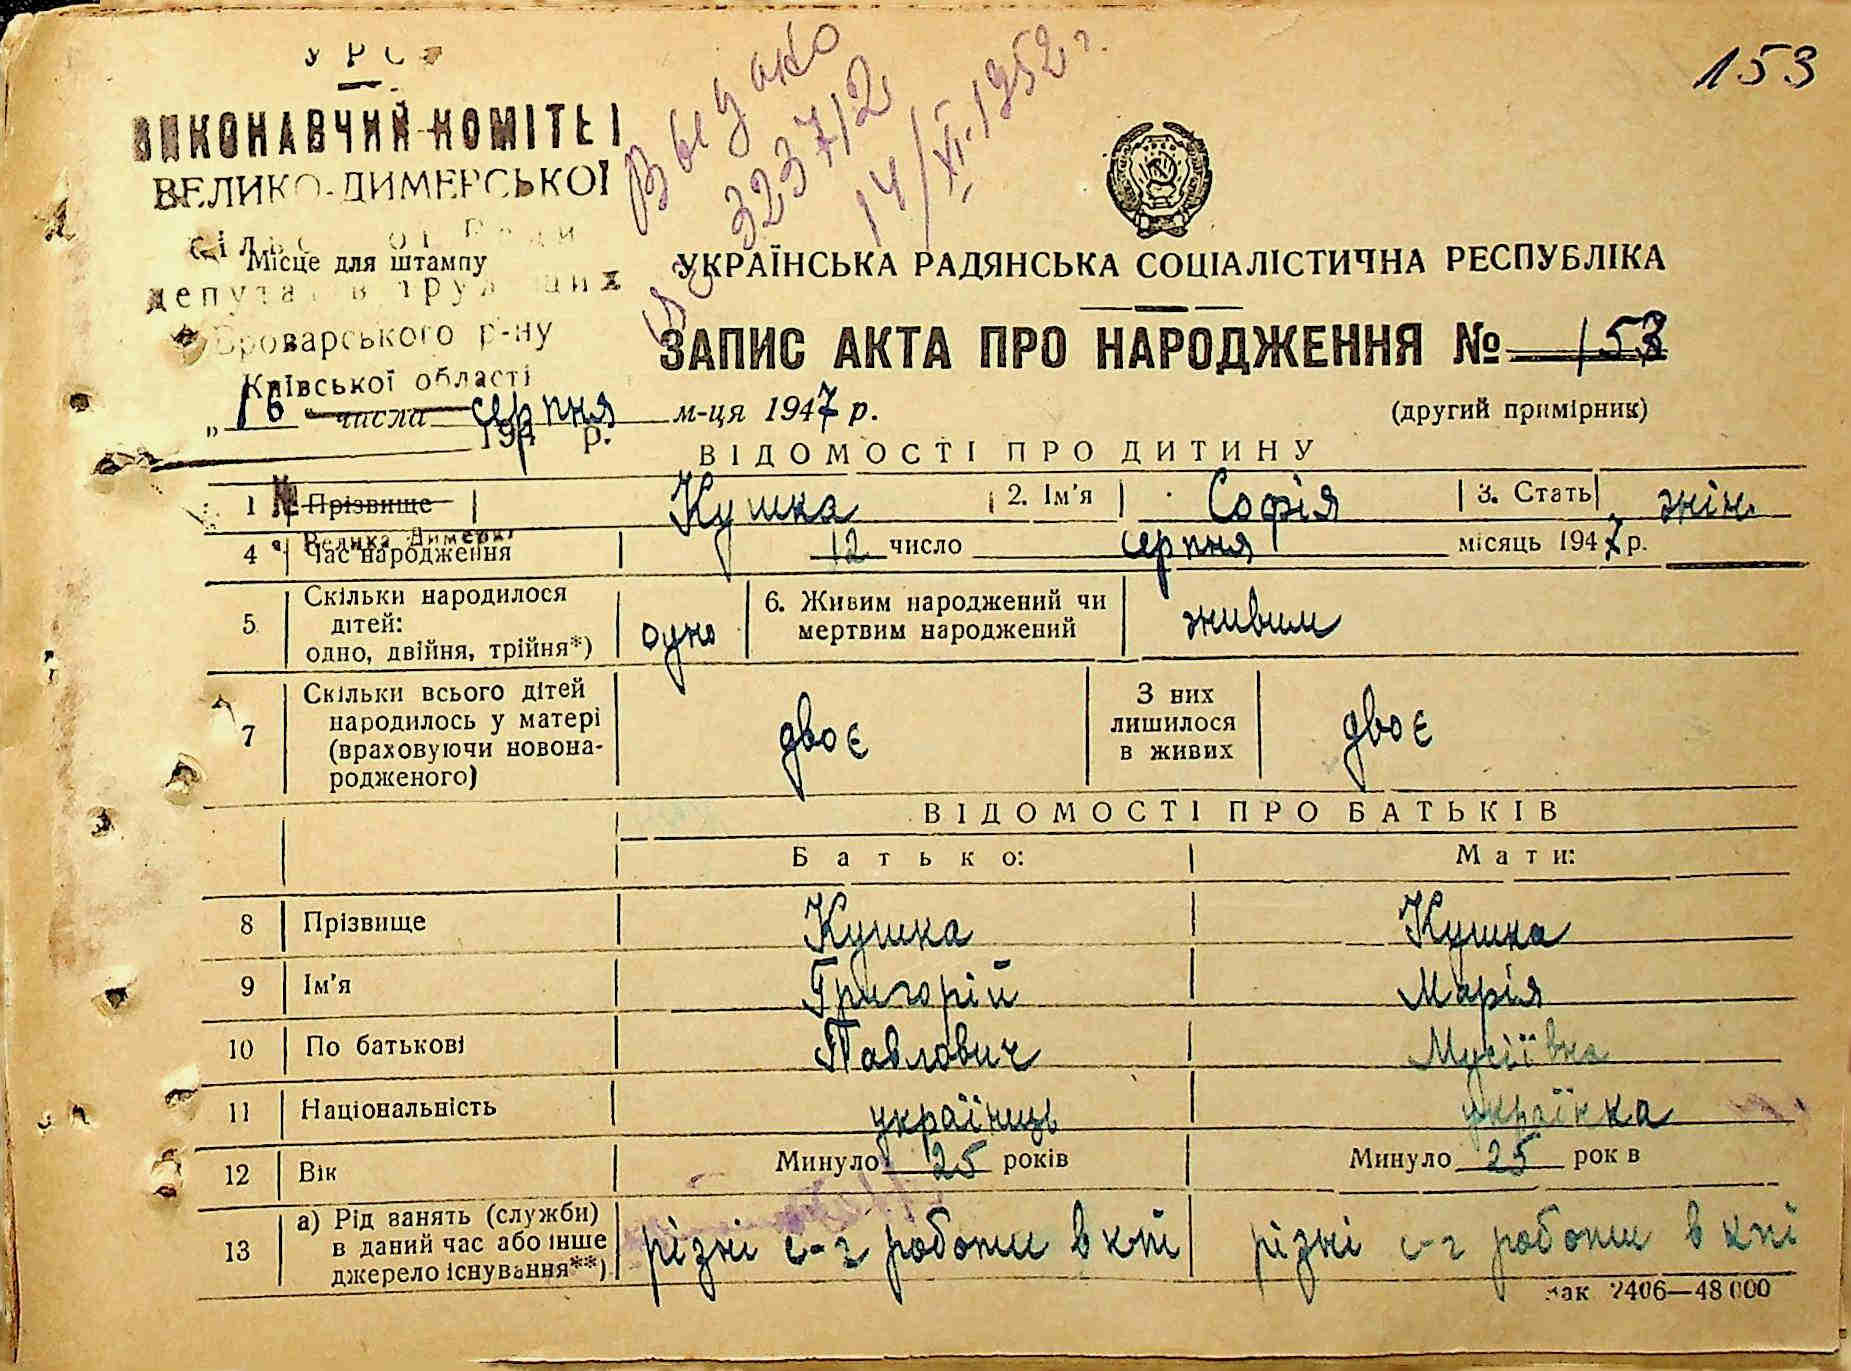 153
УРСР
ВИКОНАВЧИЙ КОМІТЕТ
ВЕЛИКО-ДИМЕРСЬКОЇ
Місце для штампу
Броварського р-ну
Київської області
194 р.
№
с. Велика Димерка
Выдано
323712
14/XI.1952 г.
УКРАЇНСЬКА РАДЯНСЬКА СОЦІАЛІСТИЧНА РЕСПУБЛІКА
ЗАПИС АКТА ПРО НАРОДЖЕННЯ № 153
„16" числа серпня м-ця 1947 р. (другий примірник)
ВІДОМОСТІ ПРО ДИТИНУ
1 Прізвище Кушка 2. Ім'я Софія 3. Стать жін.
4 Час народження 12 число серпня місяць 1947 р.
5 Скільки народилося дітей: одно, двійня, трійня*) одно 6. Живим народжений чи мертвим народжений живим
7 Скільки всього дітей народилось у матері (враховуючи новонародженого) двоє З них лишилося в живих двоє
ВІДОМОСТІ ПРО БАТЬКІВ
Батько: Мати:
8 Прізвище Кушка Кушка
9 Ім'я Григорій Марія
10 По батькові Павлович Мусіївна
11 Національність українць українка
12 Вік Минуло 25 років Минуло 25 рок в
13 а) Рід занять (служби) в даний час або інше джерело існування**) різні с-г роботи в кпі різні с-г роботи в кпі
зак 2406—48 000